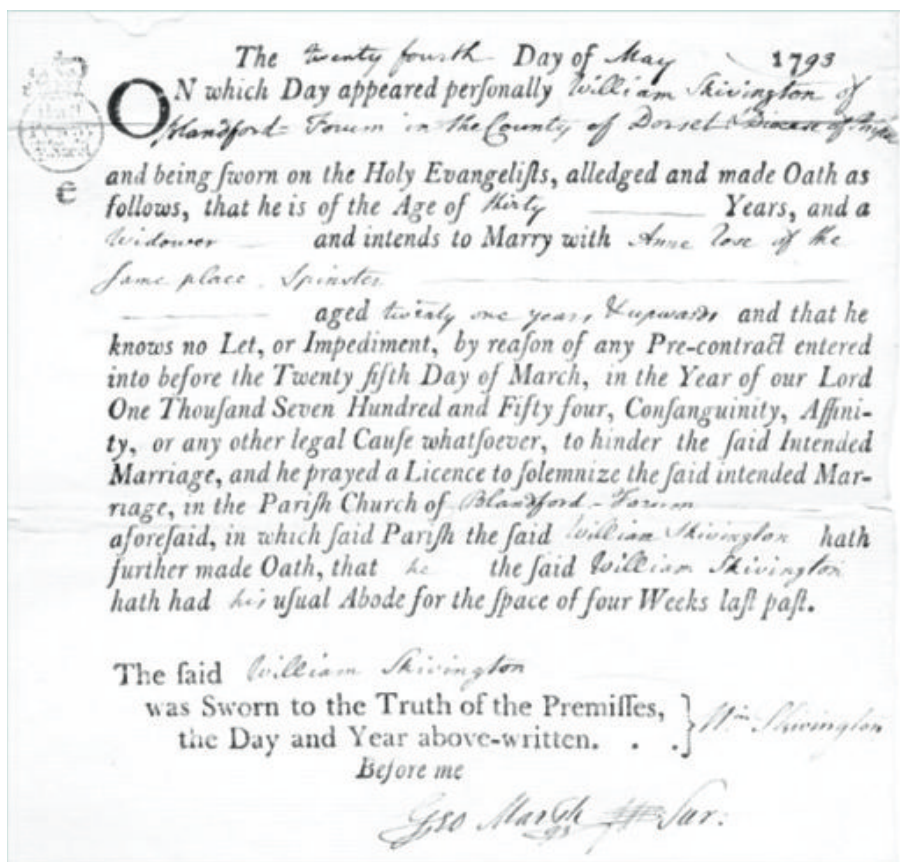 The twenty fourth Day of May 1793
ON which Day appeared perſonally William Skivington of
Blandford-Forum in the County of Dorset & Dioceſe of
and being ſworn on the Holy Evangeliſts, alledged and made Oath as
follows, that he is of the Age of thirty Years, and a
Widower and intends to Marry with Anne Rose of the
ſame place, Spinster
aged twenty one years & upwards and that he
knows no Let, or Impediment, by reaſon of any Pre-contract entered
into before the Twenty fifth Day of March, in the Year of our Lord
One Thouſand Seven Hundred and Fifty four, Conſanguinity, Affini-
ty, or any other legal Cauſe whatſoever, to hinder the ſaid Intended
Marriage, and he prayed a Licence to ſolemnize the ſaid intended Mar-
riage, in the Pariſh Church of Blandford-Forum
aforeſaid, in which ſaid Pariſh the ſaid William Skivington hath
further made Oath, that he the ſaid William Skivington
hath had his uſual Abode for the ſpace of four Weeks laſt paſt.
The ſaid William Skivington
was Sworn to the Truth of the Premiſſes,
the Day and Year above-written. . . } Wm Skivington
Before me
Geo Marsh Sur: